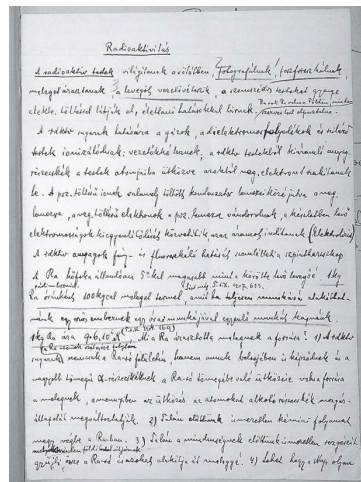 Radioaktivitás
A radioaktív testek világítanak a sötétben, fotografálnak, foszforeszkálnak,
meleget árasztanak, a levegőt vezetővé teszik, a szomszédos testeket gyenge
elektr. töltéssel látják el, élettani hatásokkal bírnak.
A rdktív sugarak hatására a gázok, a dielektromos folyadékok és szilárd
testek ionizálódnak; vezetőkké lesznek, a rdktív testekből kiáramló anyag-
részecskék a testek atomjaiba ütközve azokból neg. elektront szakítanak
ki. A poz. töltésű ionok valamely töltött kondenzátor lemezei közé jutva a neg.
lemezre, a neg. töltésű elektronok a poz. lemezre vándorolnak, a készletben levő
elektromosságok kiegyenlítődését közvetítik azaz áramot indítanak (Elektrolízis)
A rdktív anyagok fény- és fluoreskáló hatását szemlélteti a szpintariszkop
A Ra hőfoka állandóan 5°-kal magasabb mint a körötte levő levegőé. 1 kg
Ra óránként 100 kgcal meleget termel, amit ha teljesen munkává alakíthat-
nánk egy erős embernek egy órai munkájával egyenlő munkát kapnánk
1 kg Ra ára Mi a Ra árasztotta melegnek a forrása? 1) A rdktív
sugarak nemcsak a Ra-só felületén, hanem annak belsejében is képződnek és a
nagyobb tömegű α-részecskéknek a Ra-só tömegébe való ütközése volna forrása
a melegnek, amennyiben az ütközés az atomokat alkotó részecskék mozgás-
állapotát megváltoztatják. 2) Talán előttünk ismeretlen kémiai folyamat
megy végbe a Ra-ban. 3) Talán a mindenségnek előttünk ismeretlen energiáit
gyűjti össze a Ra-só és azokat alakítja át meleggé. 4) Lehet hogy a Nap olyan